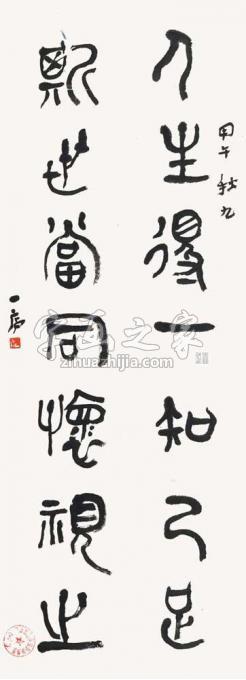 甲午秋九
人生得一知己足
斯世當同懷視之
字画之家
zihuazhijia.com